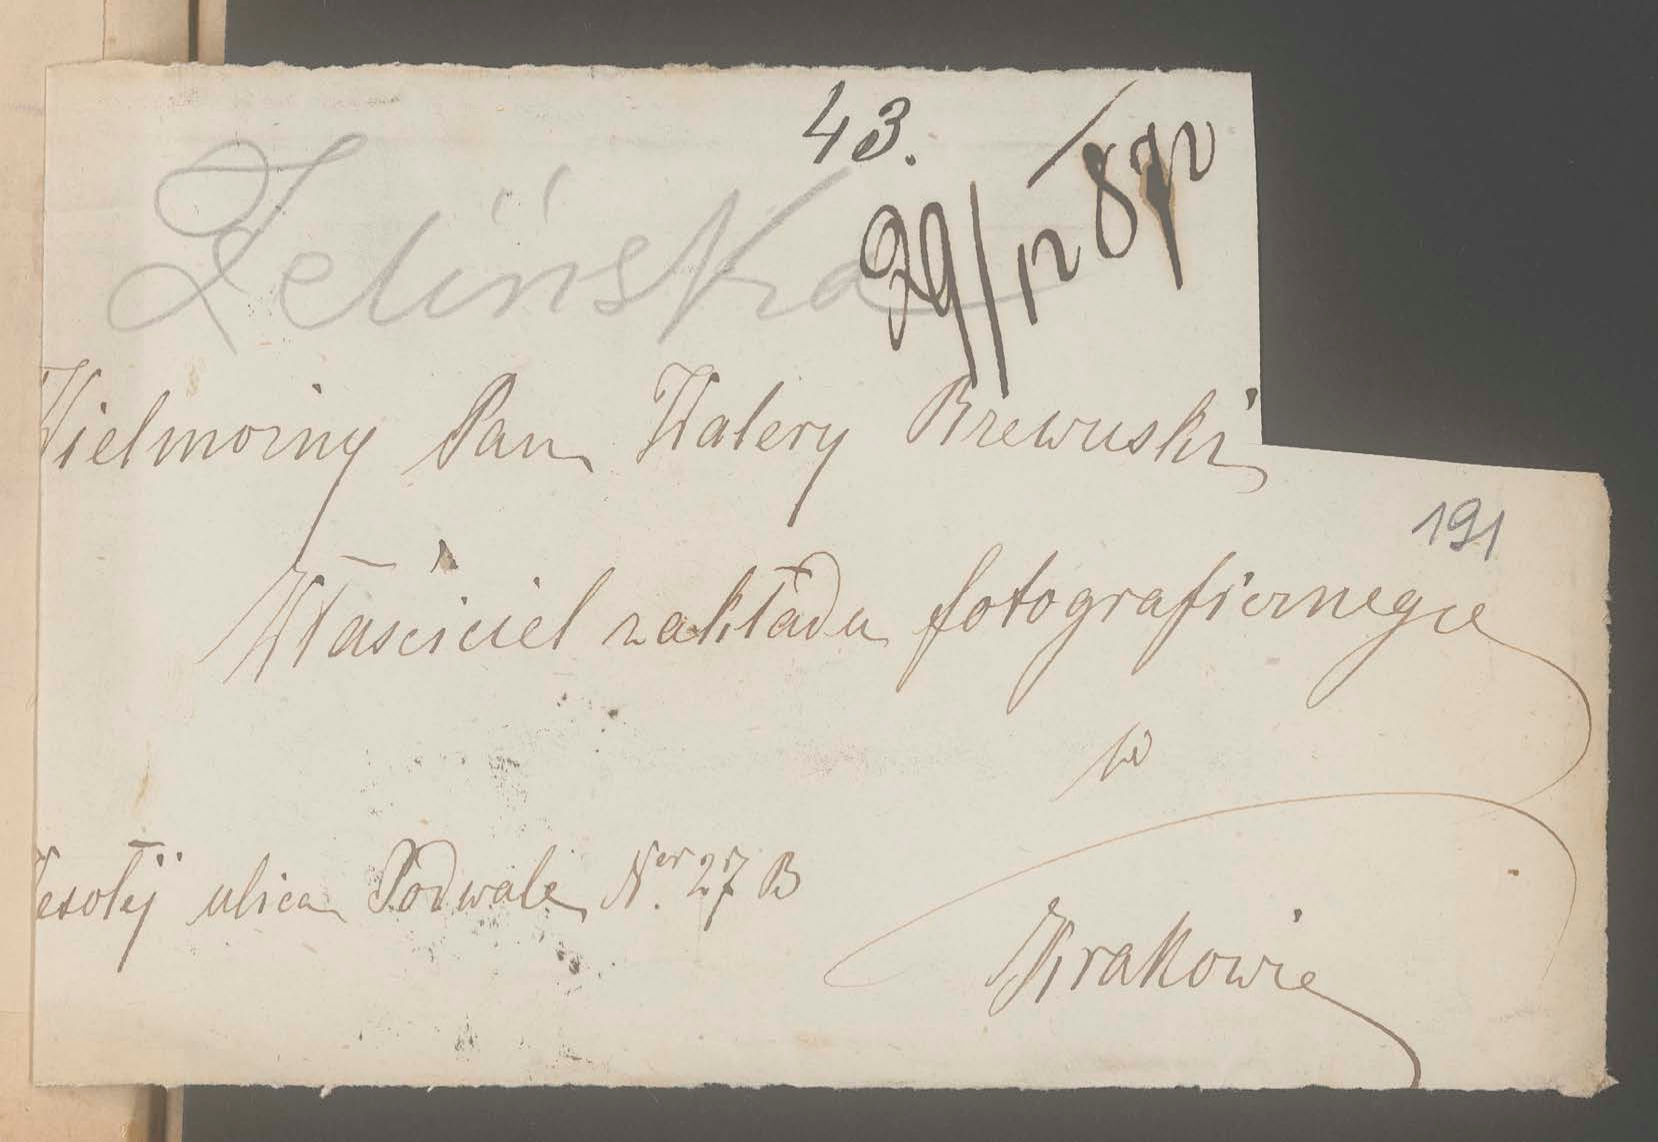 43.
29/12 872
Zelińska
Wielmożny Pan Walery Rzewuski
191
Właściciel zakładu fotograficznego
w
Wesołej ulica Podwale Ner. 27 B
Krakowie